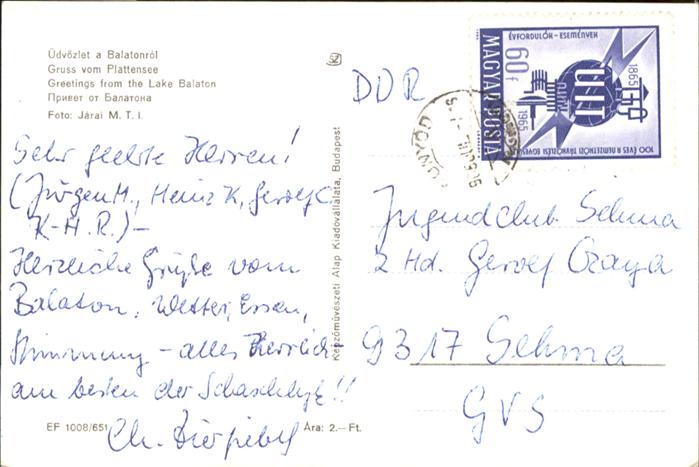 Üdvözlet a Balatonról
Gruss vom Plattensee
Greetings from the Lake Balaton
Привет от Балатона
Foto: Járai M. T. I.
Sehr geehrte Herren!
(Jürgen M., Heinz K, Gerolf C
K-H.R.)-
Herzliche Grüße vom
Balaton. Wetter, Essen,
Stimmung - alles herrlich
am besten der Schaschlyk!!
Ch.
EF 1008/651
Ára: 2.— Ft.
Képzőművészeti Alap Kiadóvállalata, Budapest
DDR
Jugendclub Sehma
z Hd. Gerolf
9317 Sehma
GVS
ÉVFORDULÓK - ESEMÉNYEK
MAGYAR POSTA
60f
1865
1965
UIT
100 ÉVES A NEMZETKÖZI TÁVKÖZLÉSI EGYESÜLET